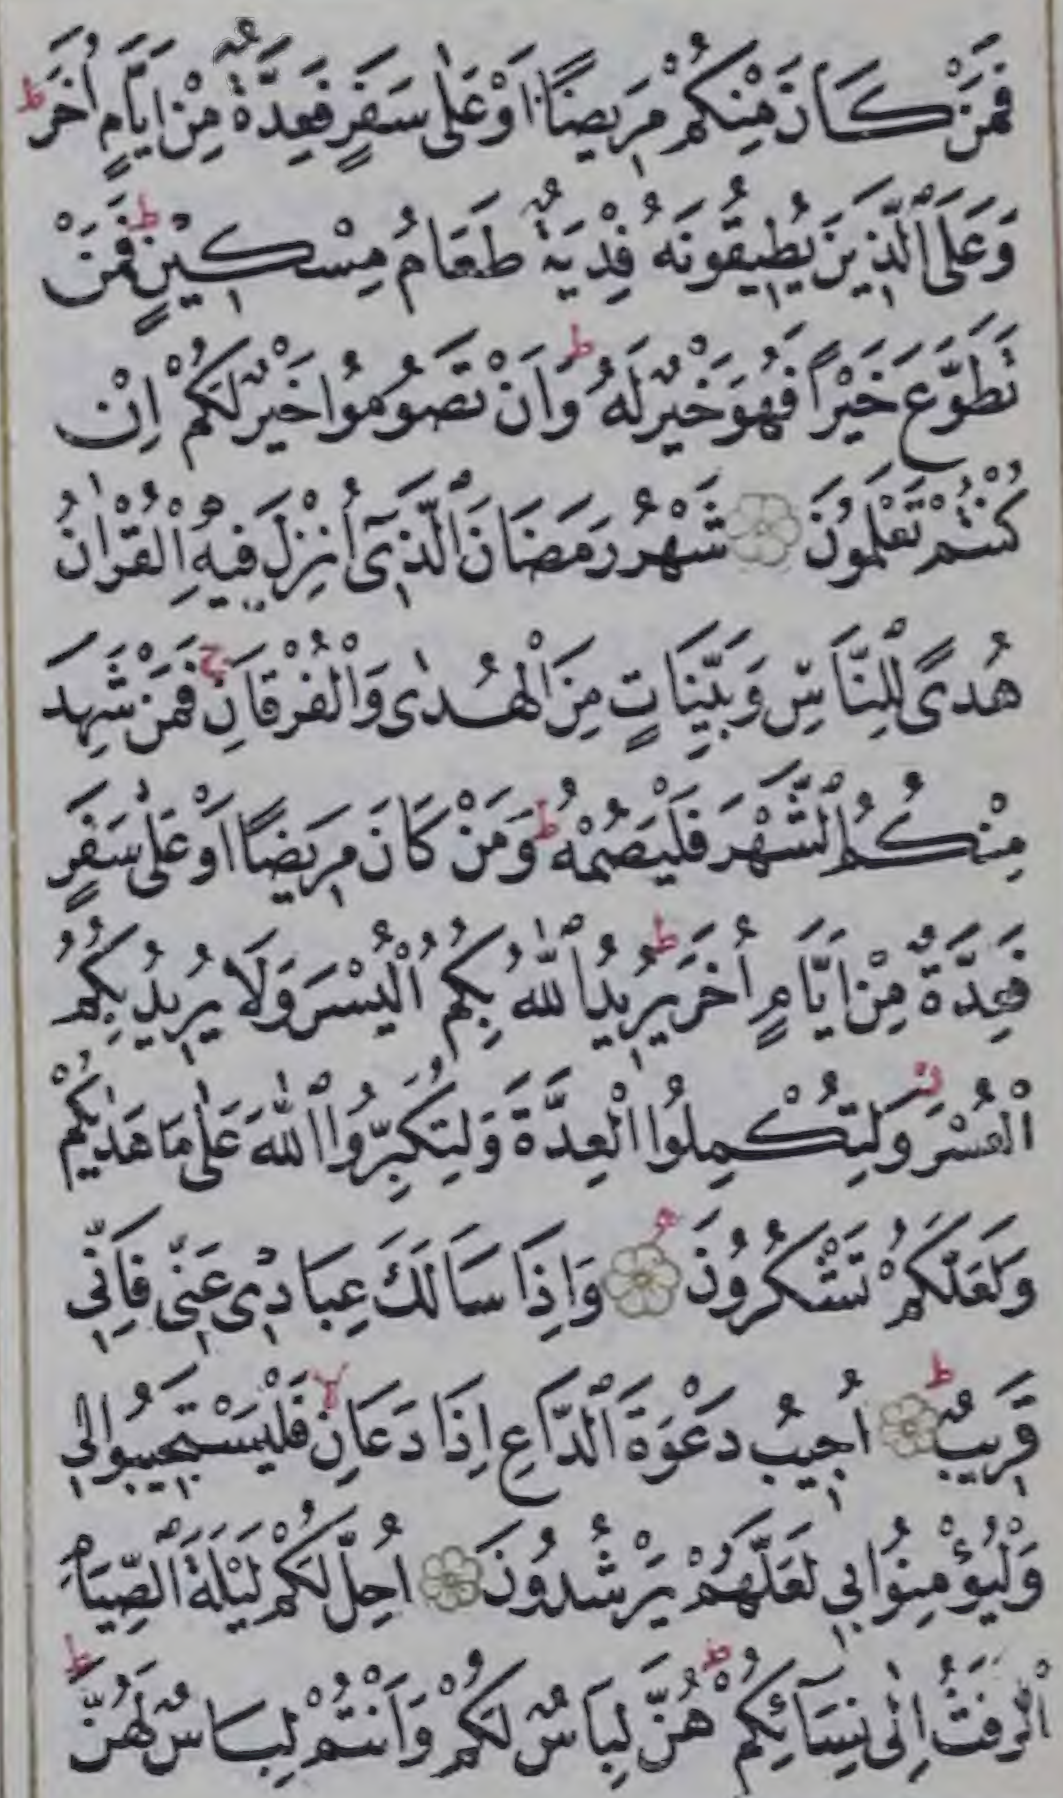 فَمَنْ كَانَ مِنْكُمْ مَرِيضًا اَوْ عَلٰى سَفَرٍ فَعِدَّةٌ مِنْ اَيَّامٍ اُخَرَ ط
وَعَلَى الَّذِينَ يُطِيقُونَهُ فِدْيَةٌ طَعَامُ مِسْكِينٍ ط فَمَنْ
تَطَوَّعَ خَيْرًا فَهُوَ خَيْرٌ لَهُ ط وَاَنْ تَصُومُوا خَيْرٌ لَكُمْ اِنْ
كُنْتُمْ تَعْلَمُونَ شَهْرُ رَمَضَانَ الَّذِٓى اُنْزِلَ فِيهِ الْقُرْاٰنُ
هُدًى لِلنَّاسِ وَبَيِّنَاتٍ مِنَ الْهُدٰى وَالْفُرْقَانِ ج فَمَنْ شَهِدَ
مِنْكُمُ الشَّهْرَ فَلْيَصُمْهُ ط وَمَنْ كَانَ مَرِيضًا اَوْ عَلٰى سَفَرٍ
فَعِدَّةٌ مِنْ اَيَّامٍ اُخَرَ ط يُرِيدُ اللّٰهُ بِكُمُ الْيُسْرَ وَلَا يُرِيدُ بِكُمُ
الْعُسْرَ ز وَلِتُكْمِلُوا الْعِدَّةَ وَلِتُكَبِّرُوا اللّٰهَ عَلٰى مَا هَدٰيكُمْ
وَلَعَلَّكُمْ تَشْكُرُونَ وَاِذَا سَاَلَكَ عِبَادِى عَنِّى فَاِنِّى
قَرِيبٌ ط اُجِيبُ دَعْوَةَ الدَّاعِ اِذَا دَعَانِ لا فَلْيَسْتَجِيبُوا لِى
وَلْيُؤْمِنُوا بِى لَعَلَّهُمْ يَرْشُدُونَ اُحِلَّ لَكُمْ لَيْلَةَ الصِّيَامِ
الرَّفَثُ اِلٰى نِسَٓائِكُمْ ط هُنَّ لِبَاسٌ لَكُمْ وَاَنْتُمْ لِبَاسٌ لَهُنَّ ط